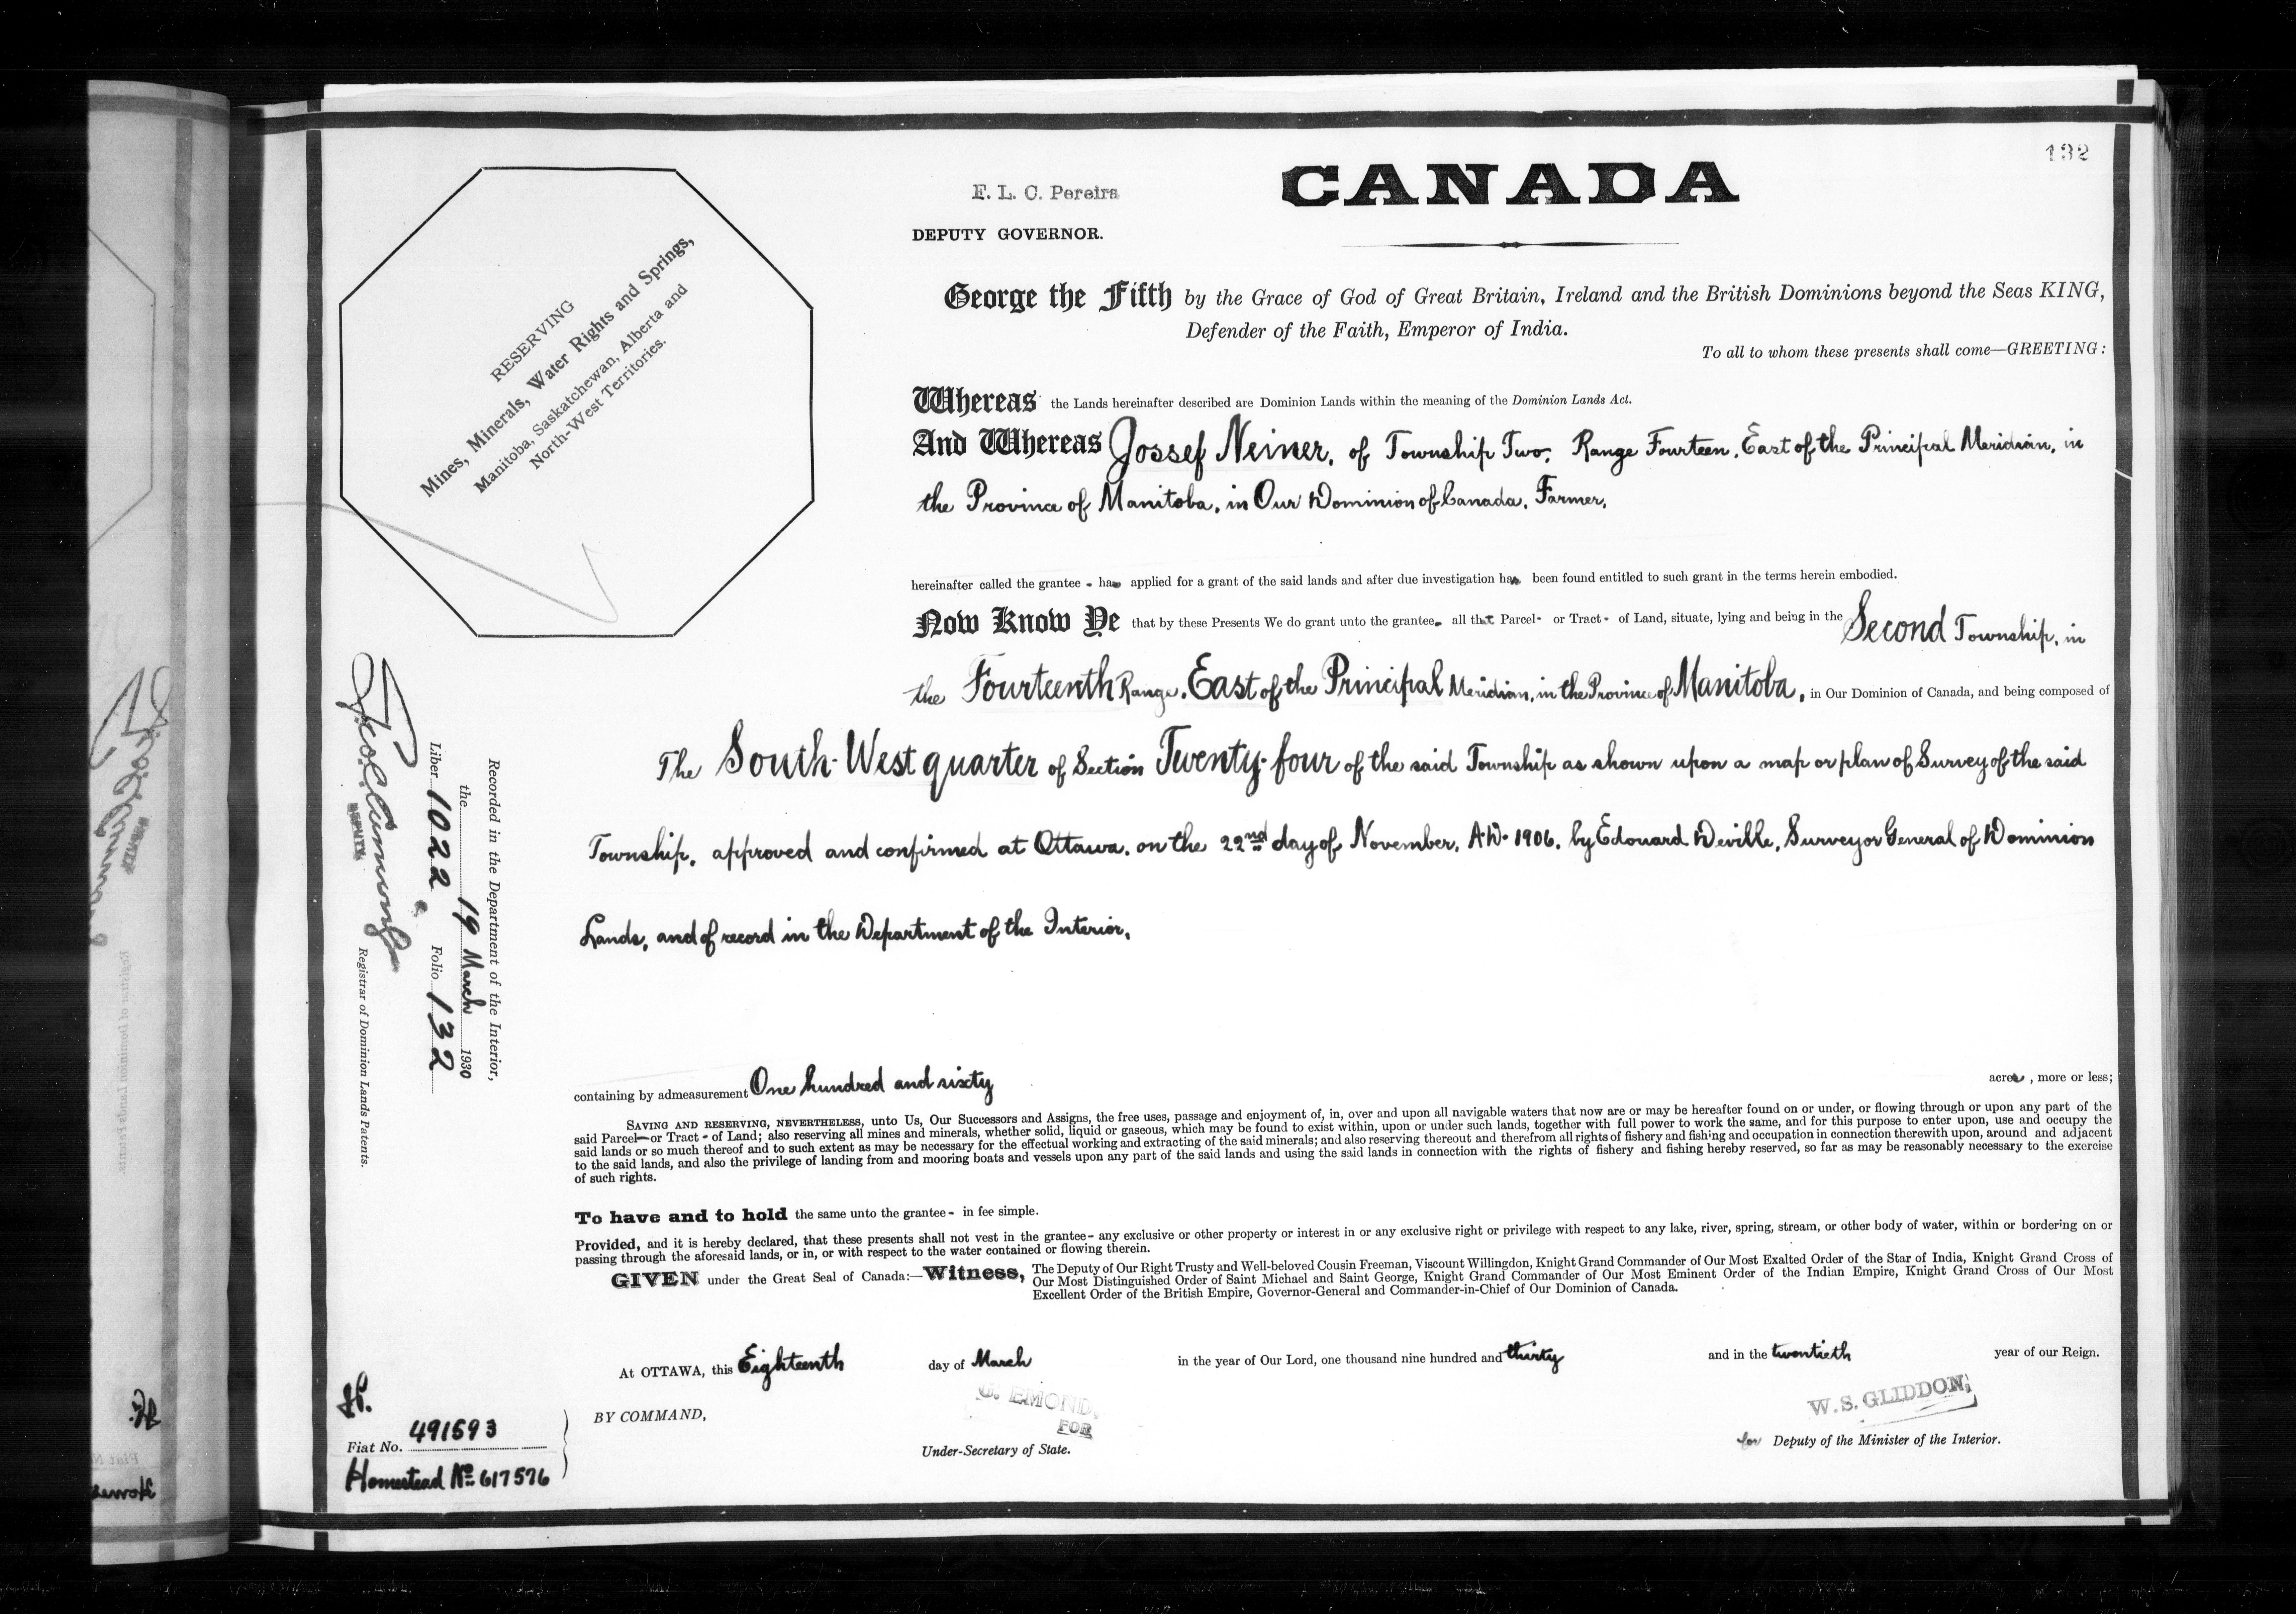 132
CANADA
E. L. C. Pereira
DEPUTY GOVERNOR.
RESERVING
Mines, Minerals, Water Rights and Springs,
Manitoba, Saskatchewan, Alberta and
North-West Territories.
George the Fifth by the Grace of God of Great Britain, Ireland and the British Dominions beyond the Seas KING,
Defender of the Faith, Emperor of India.
To all to whom these presents shall come—GREETING:
Whereas the Lands hereinafter described are Dominion Lands within the meaning of the Dominion Lands Act.
And Whereas Jossef Neiner, of Township Two, Range Fourteen, East of the Principal Meridian, in
the Province of Manitoba, in Our Dominion of Canada, Farmer,
hereinafter called the grantee - has applied for a grant of the said lands and after due investigation has been found entitled to such grant in the terms herein embodied.
Now Know Ye that by these Presents We do grant unto the grantee, all that Parcel- or Tract- of Land, situate, lying and being in the Second Township, in
the Fourteenth Range, East of the Principal Meridian, in the Province of Manitoba, in Our Dominion of Canada, and being composed of
The South-West quarter of Section Twenty-four of the said Township as shown upon a map or plan of Survey of the said
Township, approved and confirmed at Ottawa, on the 22nd day of November, A.D. 1906, by Edouard Deville, Surveyor General of Dominion
Lands, and of record in the Department of the Interior,
containing by admeasurement One hundred and sixty acres, more or less;
SAVING AND RESERVING, NEVERTHELESS, unto Us, Our Successors and Assigns, the free uses, passage and enjoyment of, in, over and upon all navigable waters that now are or may be hereafter found on or under, or flowing through or upon any part of the
said Parcel—or Tract - of Land; also reserving all mines and minerals, whether solid, liquid or gaseous, which may be found to exist within, upon or under such lands, together with full power to work the same, and for this purpose to enter upon, use and occupy the
said lands or so much thereof and to such extent as may be necessary for the effectual working and extracting of the said minerals; and also reserving thereout and therefrom all rights of fishery and fishing and occupation in connection therewith upon, around and adjacent
to the said lands, and also the privilege of landing from and mooring boats and vessels upon any part of the said lands and using the said lands in connection with the rights of fishery and fishing hereby reserved, so far as may be reasonably necessary to the exercise
of such rights.
To have and to hold the same unto the grantee - in fee simple.
Provided, and it is hereby declared, that these presents shall not vest in the grantee - any exclusive or other property or interest in or any exclusive right or privilege with respect to any lake, river, spring, stream, or other body of water, within or bordering on or
passing through the aforesaid lands, or in, or with respect to the water contained or flowing therein.
GIVEN under the Great Seal of Canada:—Witness, The Deputy of Our Right Trusty and Well-beloved Cousin Freeman, Viscount Willingdon, Knight Grand Commander of Our Most Exalted Order of the Star of India, Knight Grand Cross of
Our Most Distinguished Order of Saint Michael and Saint George, Knight Grand Commander of Our Most Eminent Order of the Indian Empire, Knight Grand Cross of Our Most
Excellent Order of the British Empire, Governor-General and Commander-in-Chief of Our Dominion of Canada.
At OTTAWA, this Eighteenth day of March in the year of Our Lord, one thousand nine hundred and thirty and in the twentieth year of our Reign.
BY COMMAND,
G. EMOND,
FOR
Under-Secretary of State.
W. S. GLIDDON,
for Deputy of the Minister of the Interior.
Recorded in the Department of the Interior,
the 19 March 1930
Liber 1022 Folio 132
DEPUTY
Registrar of Dominion Lands Patents.
Fiat No. 491593
Homestead No 617576